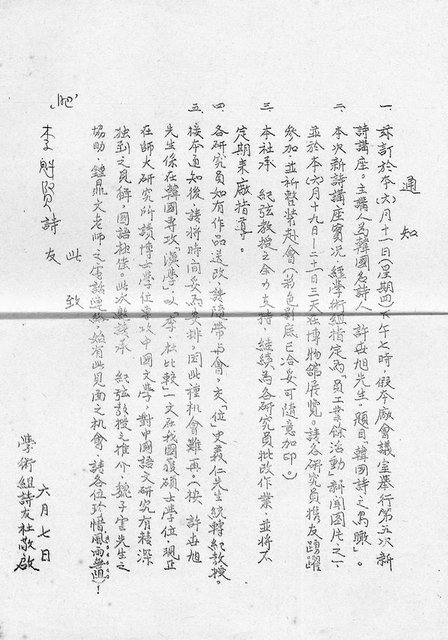 通知
一 茲訂於本(六)月十一日(星期四)下午七時假本廠會議室舉行第五次新
詩講座。主講人為韓國名詩人許世旭先生,題目「韓國詩之鳥瞰」。
二 本次新詩講座實況,經學術組指定為「員工業餘活動」新聞圖片之一,
並於本(六)月十九日—二十一日三天在博物館展覽。請各研究員携友踴躍
參加,並祈整裝赴會(若色別底已洽妥可隨意加印。)
三 本社承 紀弦教授之全力支持,繼續為各研究員批改作業,並將不
定期來廠指導。
四 各研究員如有作品送改,請隨帶與會,交「位」史義仁先生統轉紀教授。
五 接本通知後,請將時間妥為安排,因此種機會難再。(按 許世旭
先生係在韓國專攻「漢學」,以「李杜比較」一文在我國獲碩士學位,現正
在師大研究所讀博士學位,專攻中國文學,對中國語文研究有極深
獨到之見解,國語極佳。此次懇請承 紀弦教授之推介,魏子雲先生之
協助,鍾鼎文老師之電話連絡,始有此見面之机會,請各位珍惜,風雨無阻)!
此致
李魁賢詩友
學術組詩友杜敬啟
六月七日